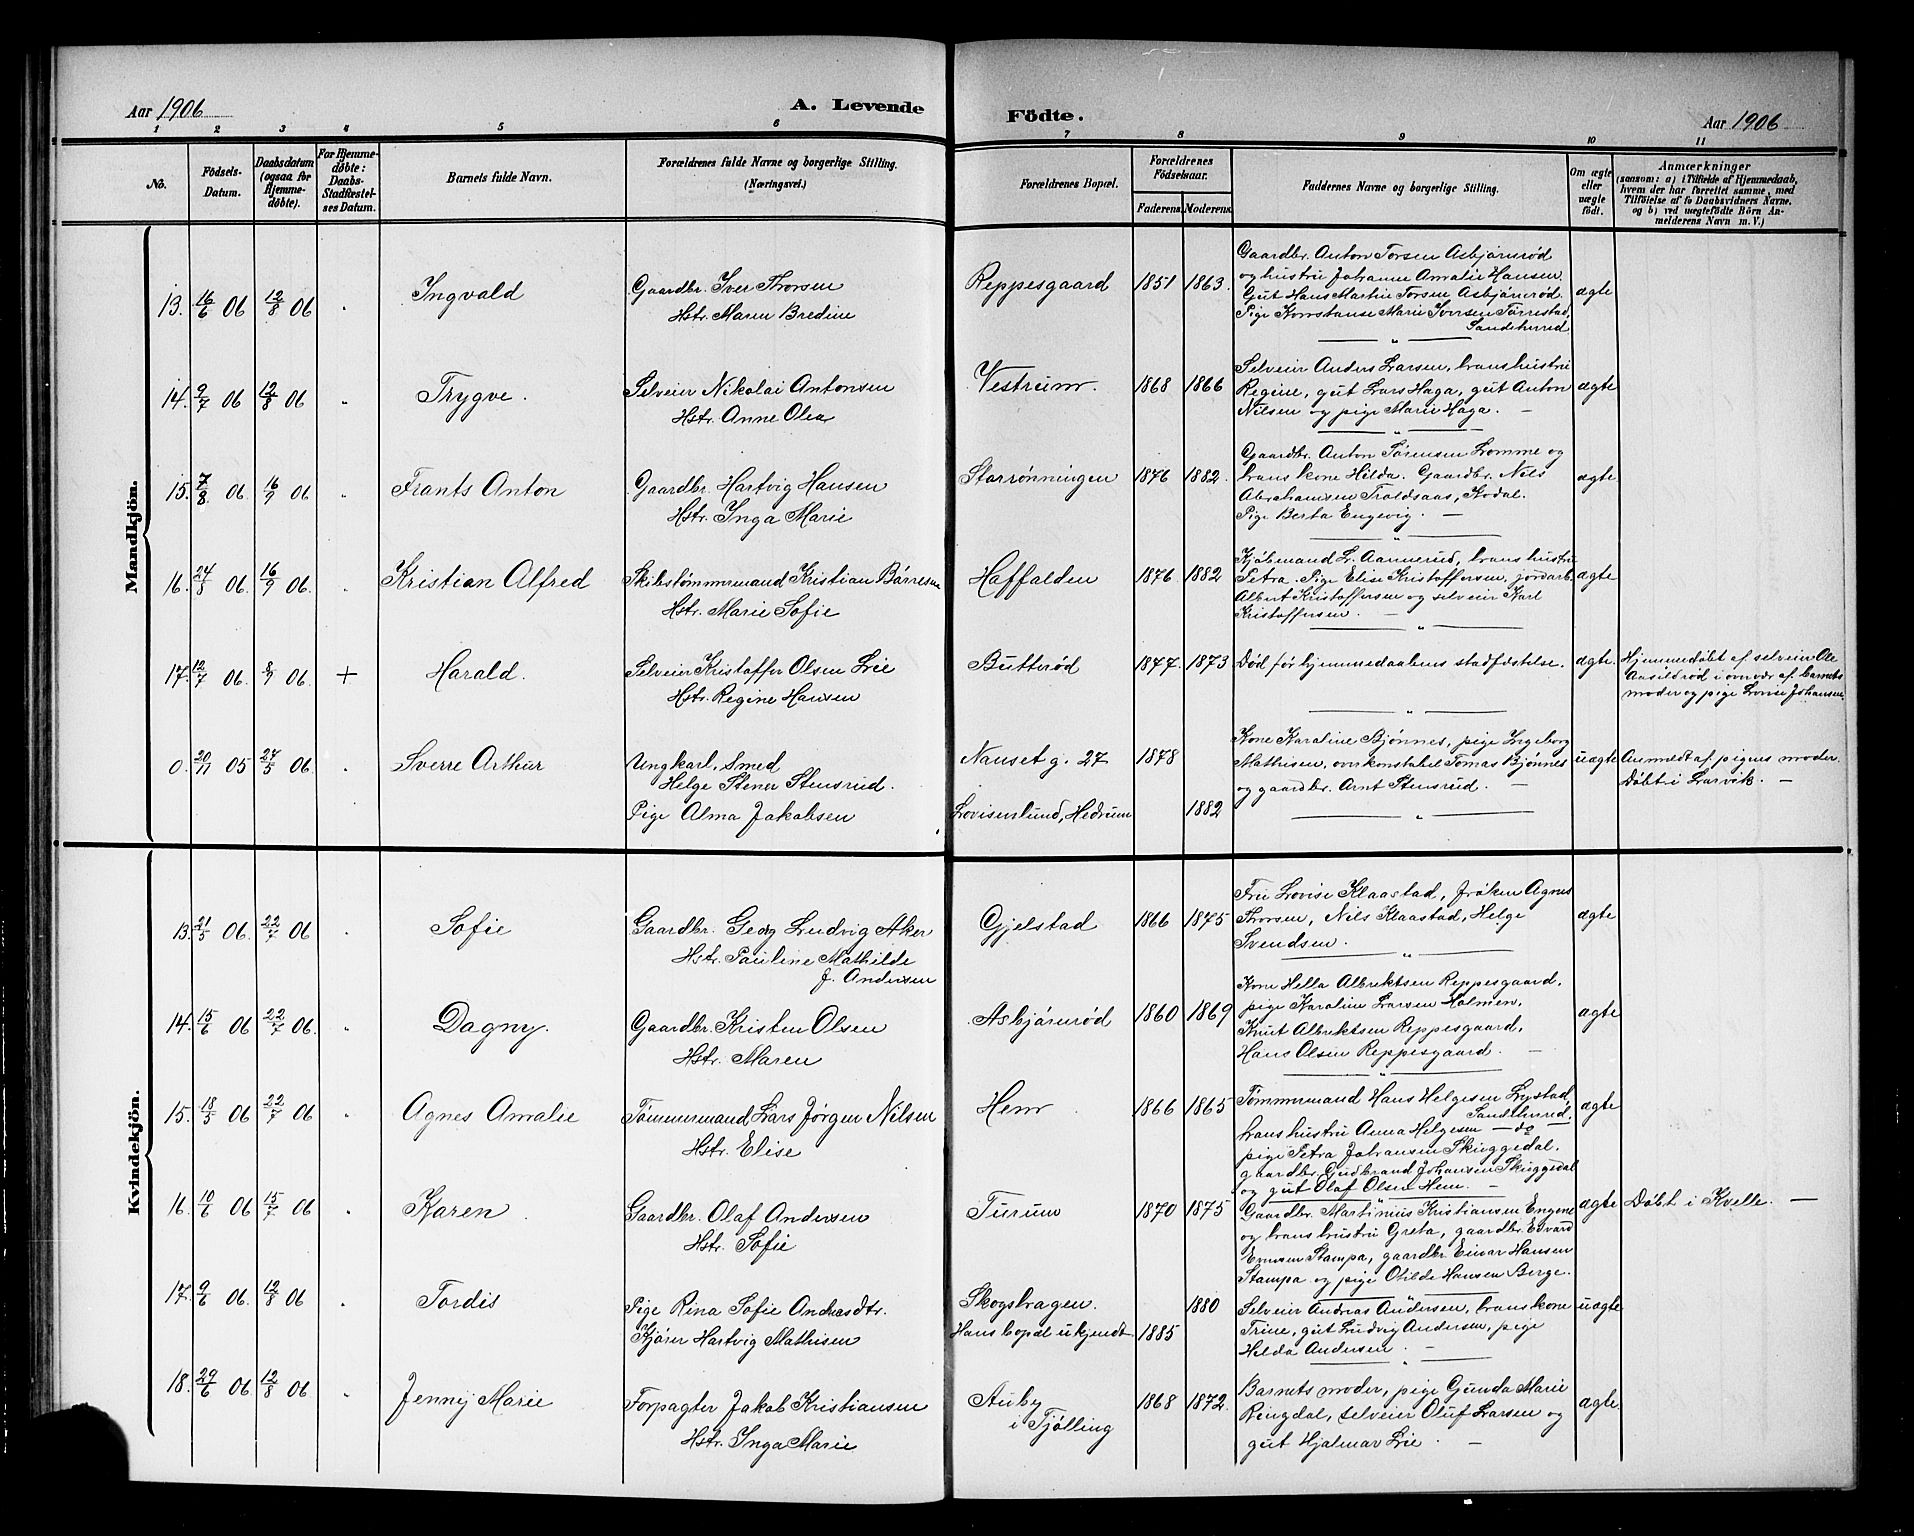 Aar 1906
A. Levende
Födte.
Aar 1906
1 2 3 4 5 6 7 8 9 10 11
No.
Födsels-
Datum.
Daabsdatum
(ogsaa for
Hjemme-
døbte).
For Hjemme-
døbte:
Daabs-
Stadfæstel-
ses Datum.
Barnets fulde Navn.
Forældrenes fulde Navne og borgerlige Stilling.
(Næringsvei.)
Forældrenes Bopæl.
Forældrenes
Fødselsaar.
Faderens. Moderens.
Faddernes Navne og borgerlige Stilling.
Om ægte
eller
uægte
født.
Anmærkninger
(saasom: a) i Tilfælde af Hjemmedaab,
hvem der har forrettet samme, med
Tilføielse af to Daabsvidners Navne.
og b) ved uægtefødte Börn An-
melderens Navn m. V.)
Mandkjön.
13. 16/6 06 12/8 06 Ingvald
Gaardbr. Iver Thorsen
Hstr. Maren Bredine
Reppesgaard 1851 1863.
Gaardbr. Anton Torsen Asbjørnrød
og hustru Johanne Amalie Hansen.
Gut Hans Martin Torsen Asbjørnrød.
Pige Konstanse Marie Iversen Tørrestad,
Sandeherred
ægte
14. 9/7 06 12/8 06 Trygve.
Selveier Nikolai Antonsen
Hstr. Anne Olea
Vestrum. 1868 1866
Selveier Anders Larsen, hans hustru
Regine, gut Lars Haga, gut Anton
Nilsen og pige Marie Haga. —
ægte
15. 7/8 06. 16/9 06 Frants Anton
Gaardbr. Hartvig Hansen
Hstr. Inga Marie
Storrønningen 1876 1882.
Gaardbr. Anton Sørensen Lomme og
hans kone Hilda. Gaardbr. Nils
Abrahamsen Troldsaas, Kodal.
Pige Berta Engevig. —
ægte
16. 24/8 06. 16/9 06. Kristian Alfred
Skibstømmermand Kristian Børresen
Hstr. Marie Sofie
Haffalden 1876. 1882
Kjøbmand L. Aannerud, hans hustru
Petra. Pige Elise Kristoffersen, jordarb.
Albert Kristoffersen og selveier Karl
Kristoffersen. —
ægte
17. 12/7 06. 8/9 06. + Harald.
Selveier Kristoffer Olsen Lie
Hstr. Regine Hansen
Butterød 1877. 1873
Død før hjemmedaabens stadfæstelse.
ægte.
Hjemmedøbt af selveier Ole
Aasildrød i overvær af barnets
moder og pige Lovise Johansen.
0. 20/11 05 27/5 06. Sverre Arthur
Ungkarl, Smed
Helge Stener Stensrud.
Pige Alma Jakobsen
Nanset g. 27 1878
Lovisenlund, Hedrum 1882
Kone Karoline Bjønnes, pige Ingeborg
Mathisen, overkonstabel Tomas Bjønnes
og gaardbr. Arnt Stensrud. —
uægte
Anmeldt af pigens moder.
Døbt i Larvik. —
Kvindekjön.
13. 21/5 06. 22/7 06 Sofie
Gaardbr. Georg Ludvig Aker
Hstr. Pauline Mathilde
J. Andersen
Gjelstad 1866 1875
Fru Lovise Klaastad, frøken Agnes
Thorsen, Nils Klaastad, Helge
Svendsen.
ægte
14. 15/6 06 22/7 06. Dagny.
Gaardbr. Kristen Olsen
Hstr. Maren
Asbjørnrød 1860 1869
Kone Hella Albrektsen Reppesgaard,
pige Karoline Larsen Holmen,
Knut Albrektsen Reppesgaard,
Hans Olsen Reppesgaard. —
ægte
15. 18/5 06 22/7 06 Agnes Amalie
Tømmermand Lars Jørgen Nilsen
Hstr. Elise
Hem 1866 1865
Tømmermand Hans Helgesen Lystad,
Sandeherred,
hans hustru Anna Helgesen — do —
pige Petra Johansen Skuggedal,
gaardbr. Gudbrand Johansen Skuggedal
og gut Olaf Olsen Hem. —
ægte
16. 10/6 06 15/7 06 Karen
Gaardbr. Olaf Andersen
Hstr. Sofie
Furum 1870 1875
Gaardbr. Martinius Kristiansen Engene
og hans hustru Greta, gaardbr. Edvard
Evensen Stampa, gaardbr. Einar Hansen
Stampa og pige Otilde Hansen Berge.
ægte
Døbt i Kvelle. —
17. 9/6 06. 12/8 06 Tordis
Pige Rina Sofie Andreasdtr.
Kjører Hartvig Mathisen
Skogshagen. 1880
Hans bopæl ukjendt 1885
Selveier Andreas Andersen, hans kone
Trine, gut Ludvig Andersen, pige
Helda Andersen. —
uægte
18. 29/6 06 12/8 06 Jenny Marie
Forpagter Jakob Kristiansen
Hstr. Inga Marie
Auby
i Tjølling
1868 1872.
Barnets moder, pige Gunda Marie
Ringdal, selveier Oluf Larsen og
gut Hjalmar Lie. —
ægte.